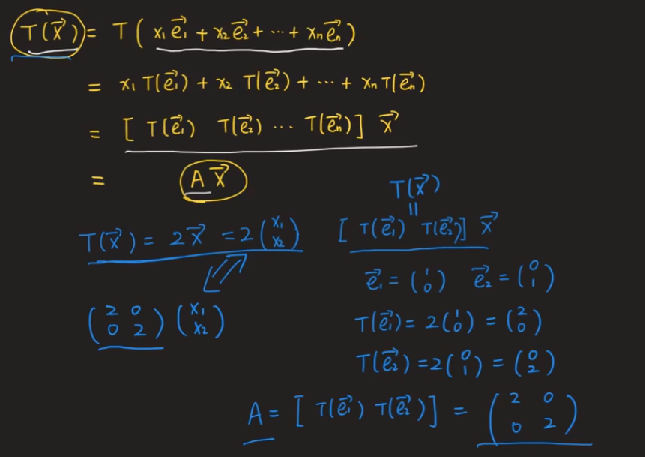 T(x⃗) = T( x₁e⃗₁ + x₂e⃗₂ + ··· + xₙe⃗ₙ )
= x₁T(e⃗₁) + x₂ T(e⃗₂) + ··· + xₙT(e⃗ₙ)
= [ T(e⃗₁) T(e⃗₂) ··· T(e⃗ₙ)] x⃗
= A x⃗
T(x⃗) = 2x⃗ = 2(x₁ x₂)
(2 0
0 2) (x₁ x₂)
T(x⃗)
=
[ T(e⃗₁) T(e⃗₂)] x⃗
e⃗₁ = (1 0) e⃗₂ = (0 1)
T(e⃗₁) = 2(1 0) = (2 0)
T(e⃗₂) = 2(0 1) = (0 2)
A = [ T(e⃗₁) T(e⃗₂)] = (2 0
0 2)